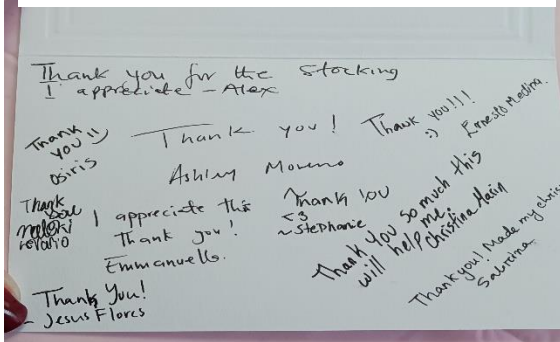 Thank you for the stocking
I appreciate - Alex
Thank
you!! :)
Osiris
Thank you!
Ashley Moreno
Thank you!!!
:)
Ernesto Medina
Thank
you
I appreciate this
Thank you!
Emmanuelle.
Thank you
<3
~Stephanie
Thank you so much this
will help me.
Christina Marin
Thank you! Made my chris
Sabrina
Thank you!
- Jesus Flores